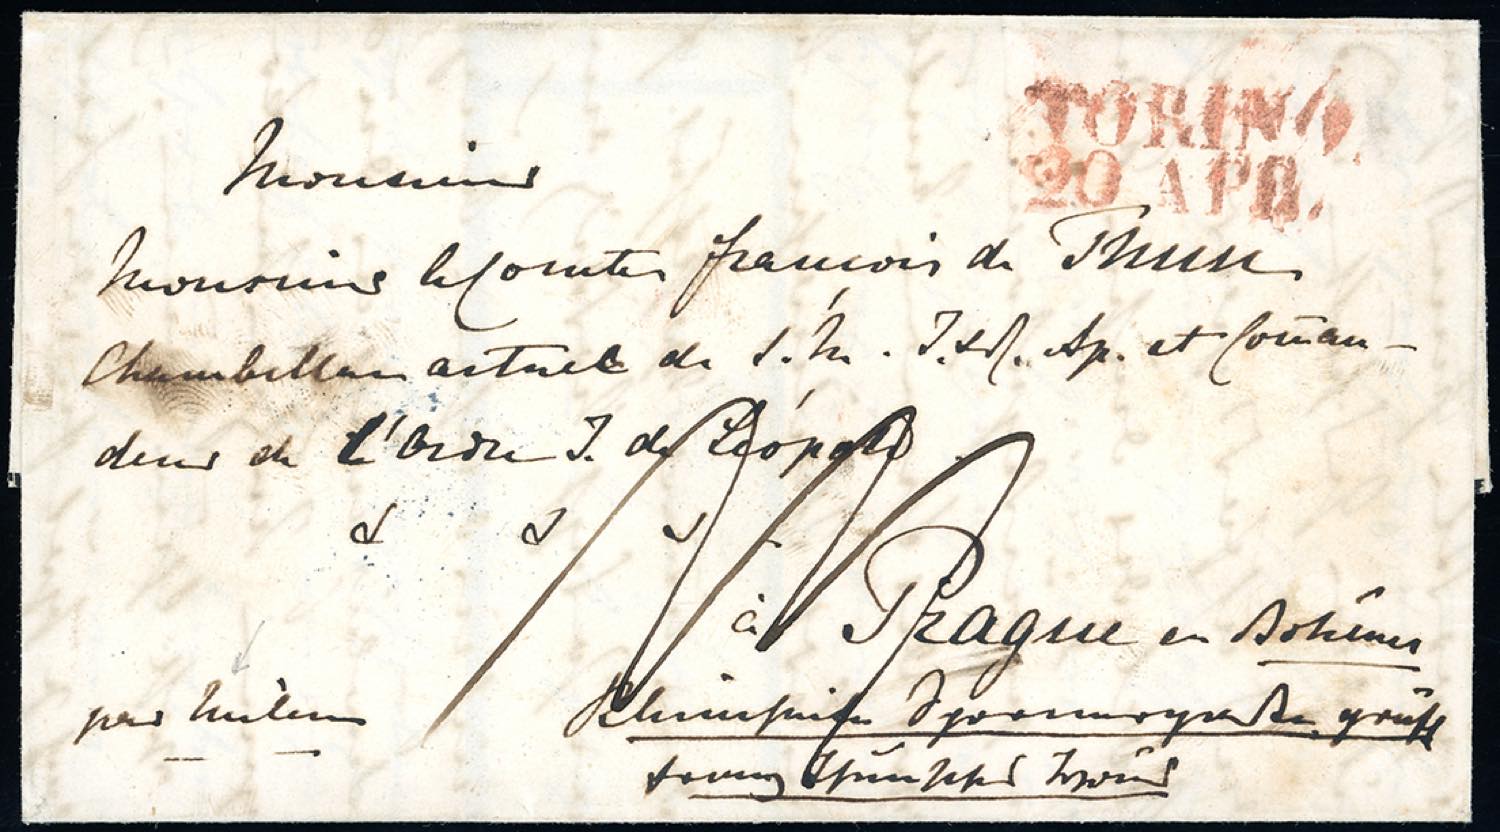 TORINO.
20 APR.
Monsieur
Monsieur le Comte François de Thun
Chambellan actuel de S. M. I. et R. Ap. et Com̄an-
deur de l'Ordre I. de Léopold
à Prague en Bohême
par Milan